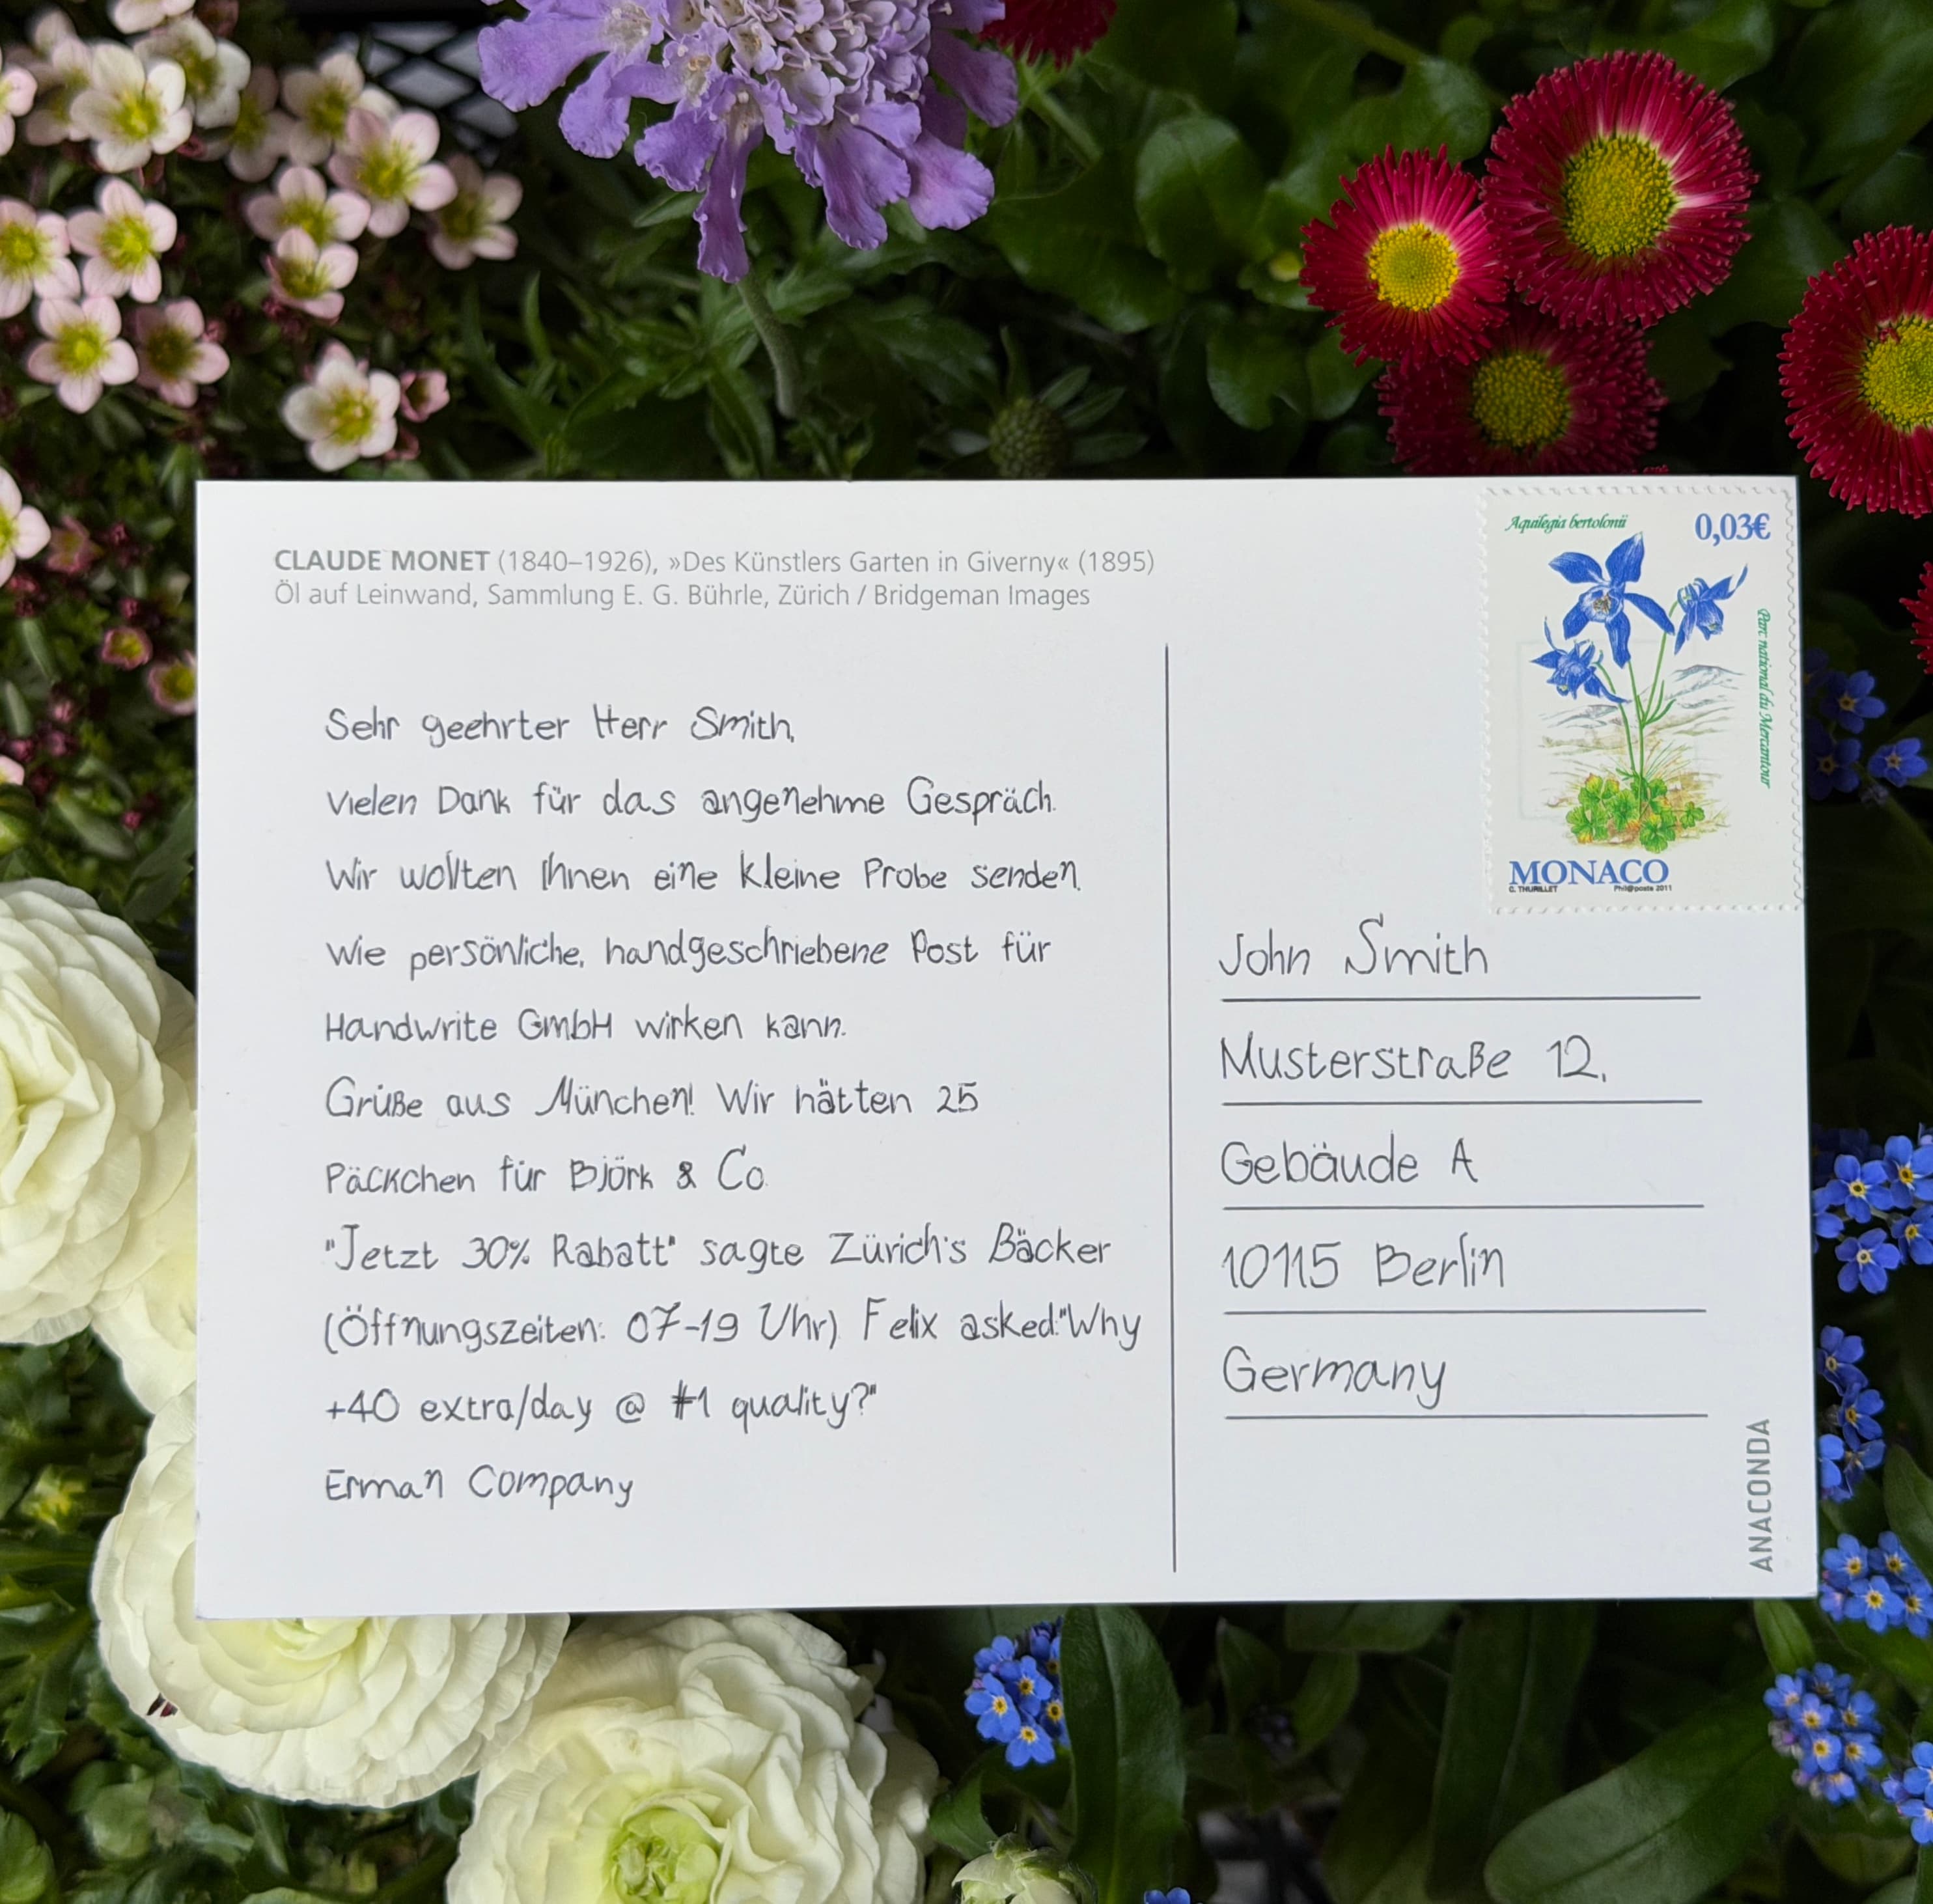 CLAUDE MONET (1840–1926), »Des Künstlers Garten in Giverny« (1895)
Öl auf Leinwand, Sammlung E. G. Bührle, Zürich / Bridgeman Images
Sehr geehrter Herr Smith,
vielen Dank für das angenehme Gespräch.
Wir wollten Ihnen eine kleine Probe senden,
wie persönliche, handgeschriebene Post für
Handwrite GmbH wirken kann.
Grüße aus München! Wir hätten 25
Päckchen für Björk & Co.
"Jetzt 30% Rabatt" sagte Zürich's Bäcker
(Öffnungszeiten: 07-19 Uhr). Felix asked:"Why
+40 extra/day @ #1 quality?"
Erman Company
Aquilegia bertolonii
0,03€
Parc national du Mercantour
MONACO
C. THURILLET
Phil@poste 2011
John Smith
Musterstraße 12,
Gebäude A
10115 Berlin
Germany
ANACONDA